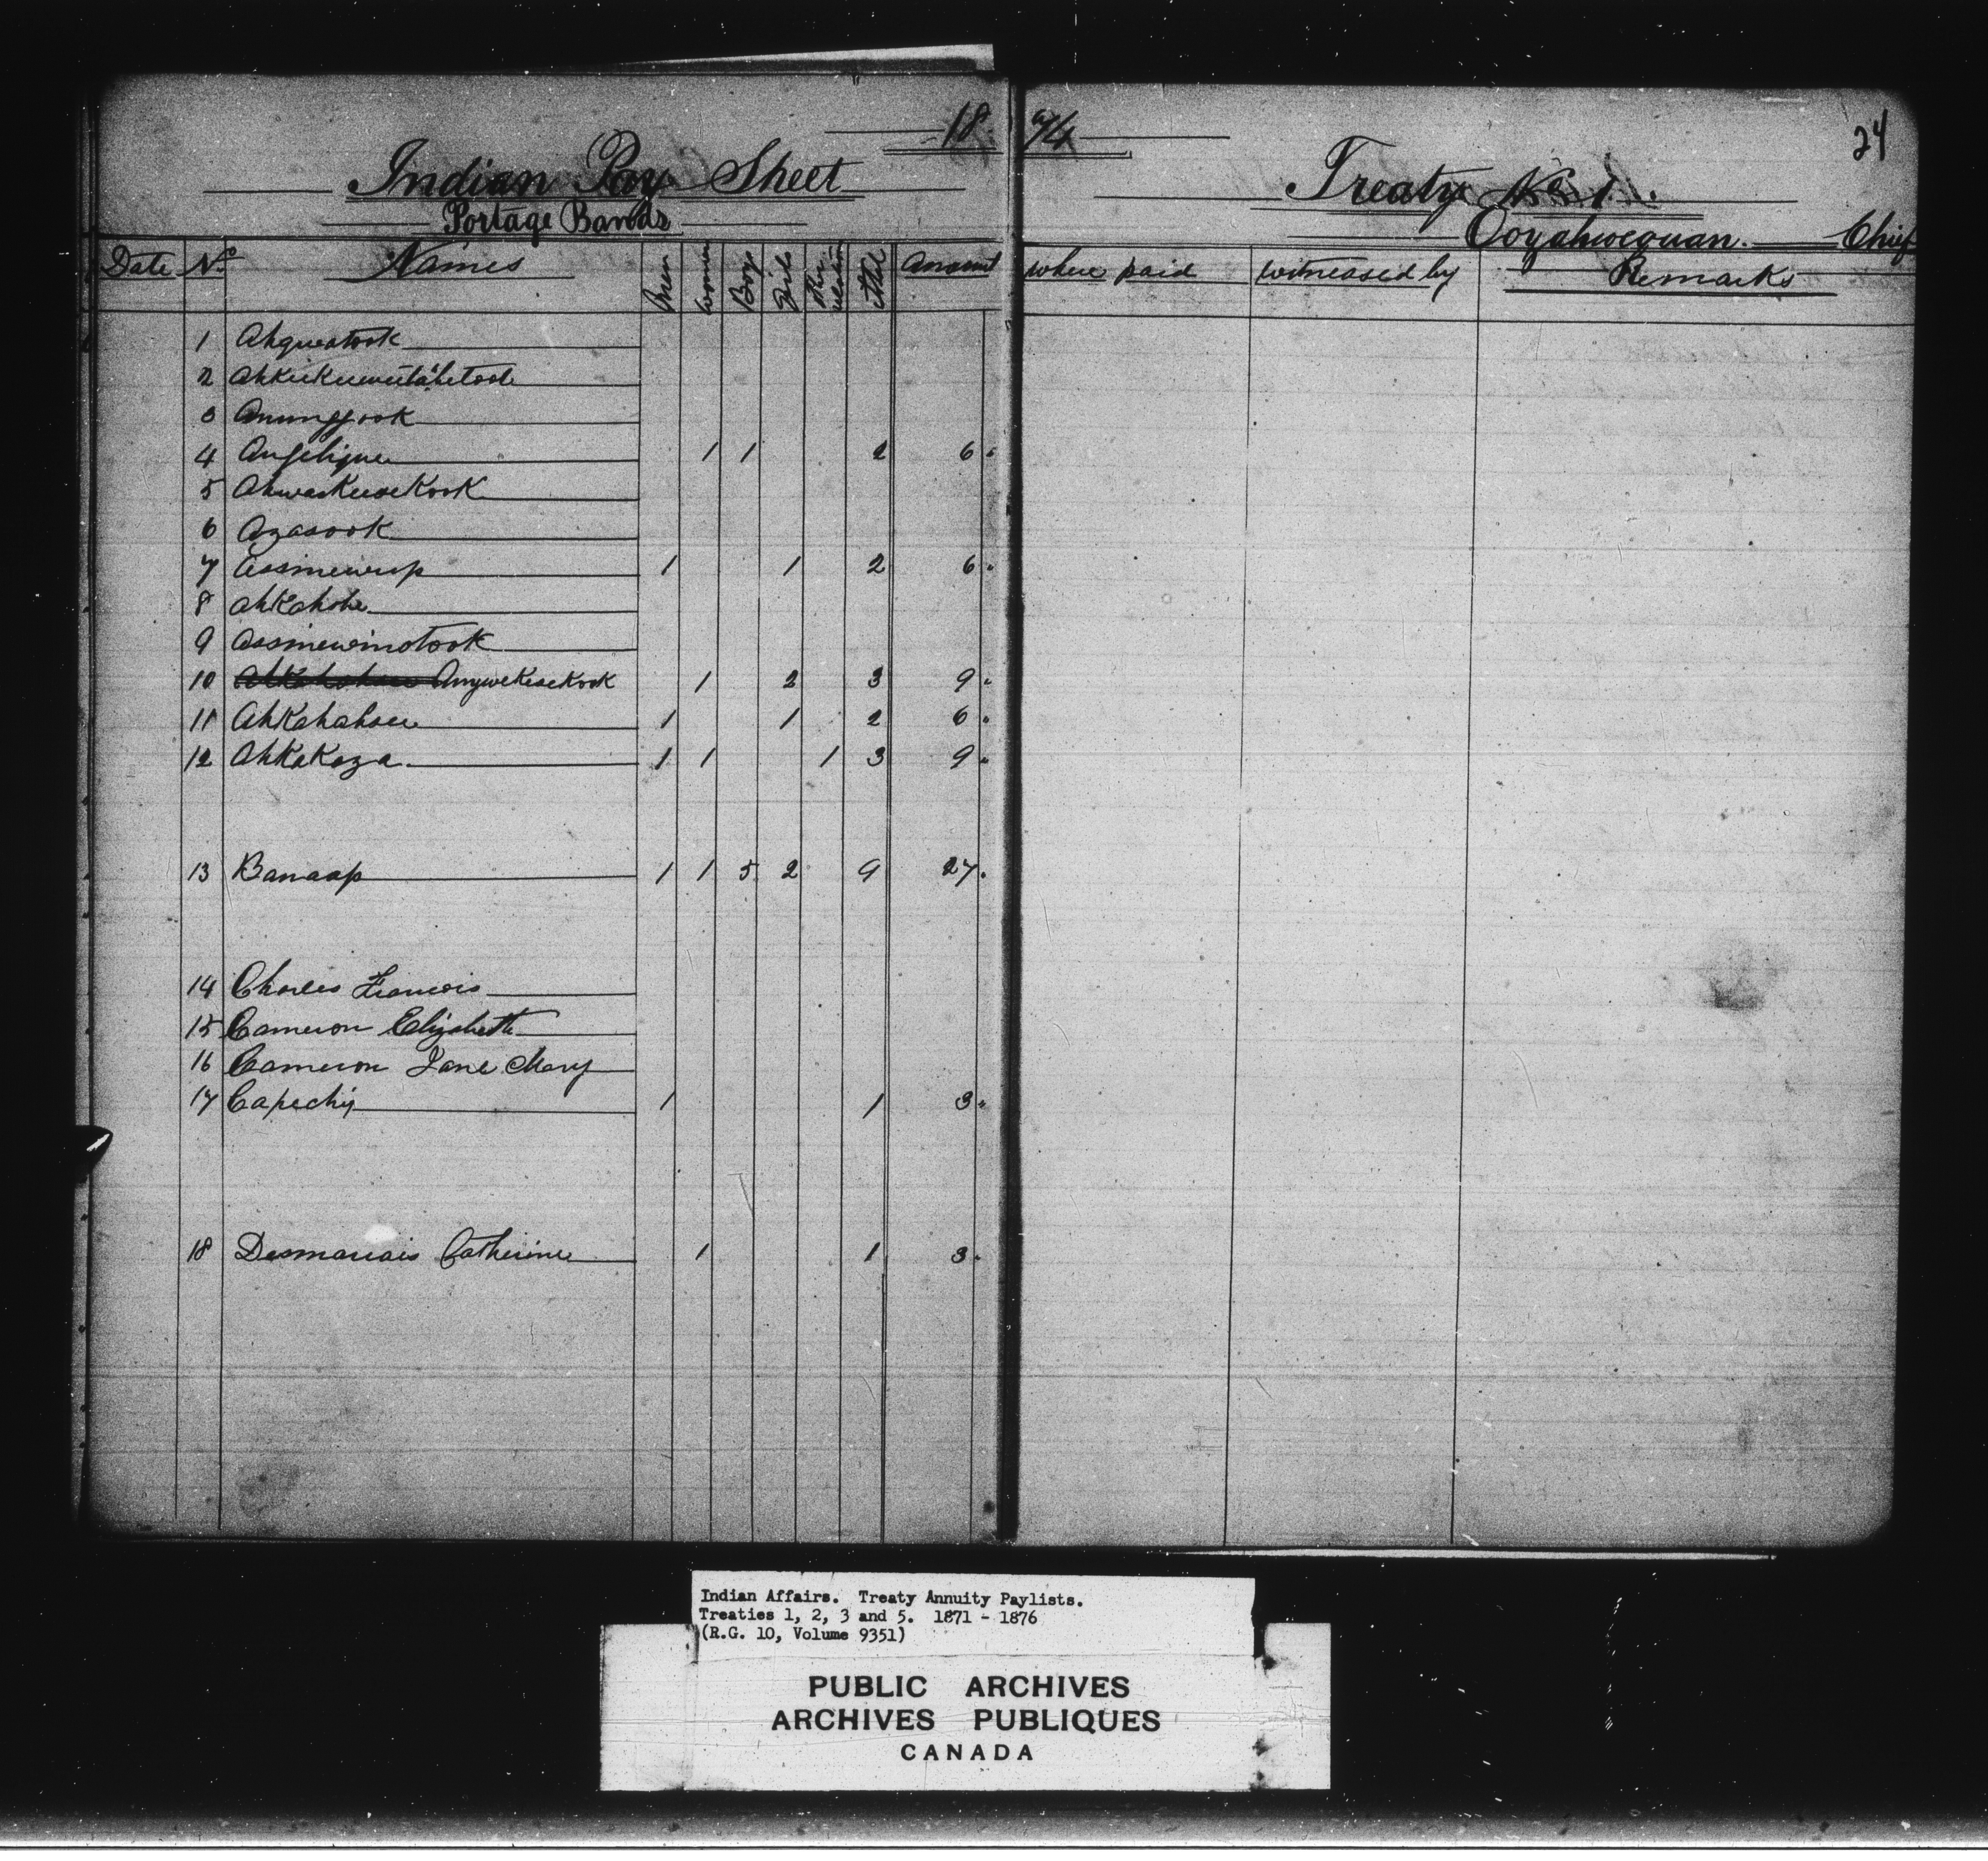 18
74
24
Indian Pay Sheet
Treaty No 1.
Portage Bands
Ooyahwequan. Chief
Date No Names Men Women Boys Girls Total Amount
where paid witnessed by Remarks
1 Ahqueatook
2
3
4 Angelique 1 1 2 6
5 Ahwaskeesekook
6 Azasook
7 Assinewusp 1 1 2 6
8 Ahkahohe
9 Assinewinotook
10 Anywekesekook 1 2 3 9
11 Ahkahahsee 1 1 2 6
12 Ahkakoza 1 1 1 3 9
13 Banaap 1 1 5 2 9 27
14 Charles Francois
15 Cameron Elizabeth
16 Cameron Jane Mary
17 Capechis 1 1 3
18 Desmarais Catherine 1 1 3
Indian Affairs. Treaty Annuity Paylists.
Treaties 1, 2, 3 and 5. 1871 - 1876
(R.G. 10, Volume 9351)
PUBLIC ARCHIVES
ARCHIVES PUBLIQUES
CANADA